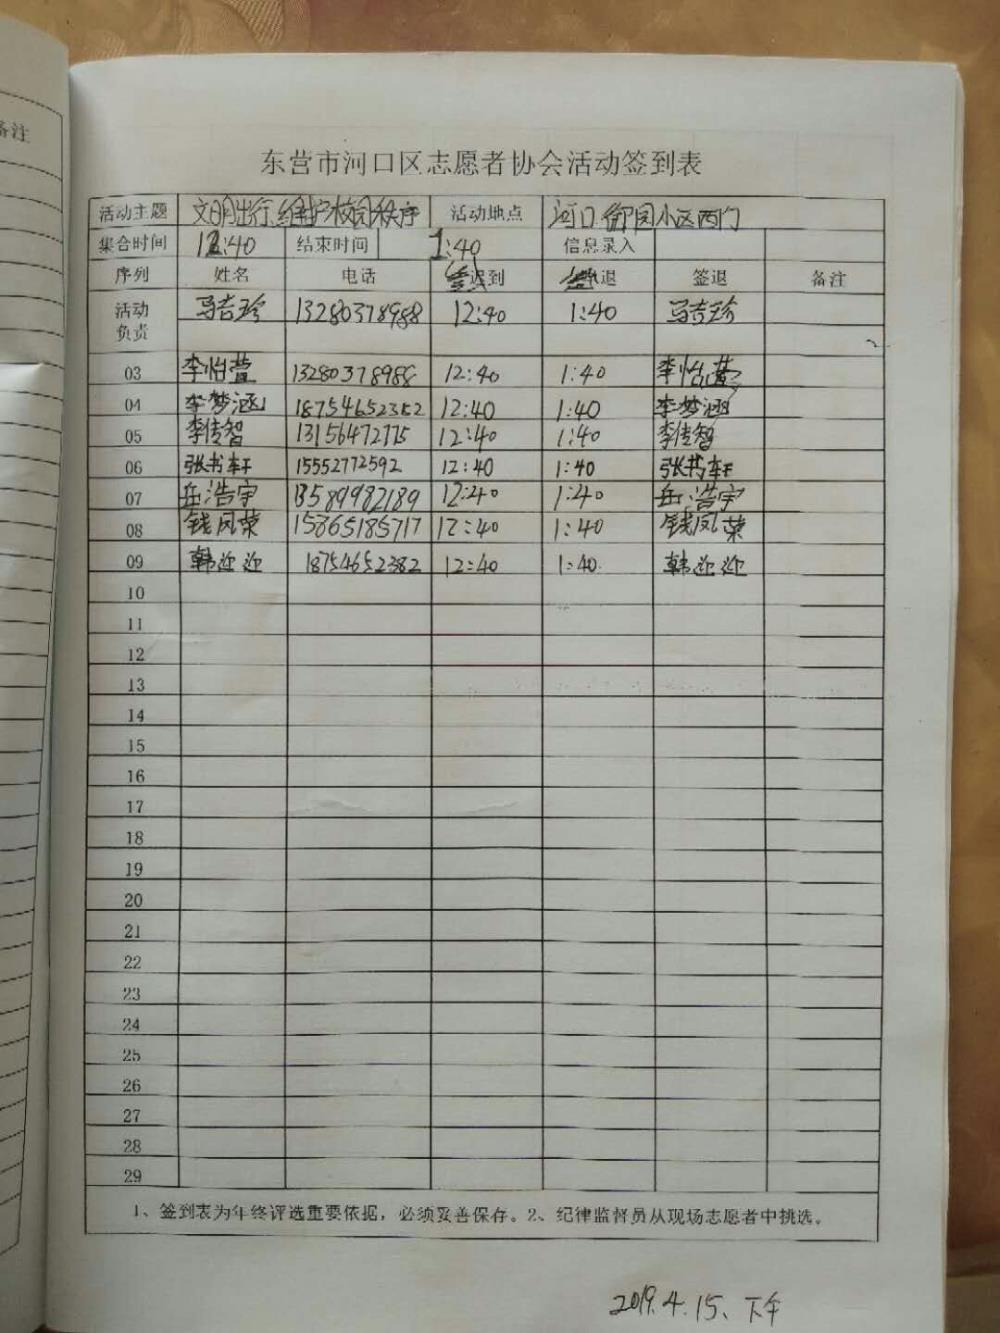 备注
东营市河口区志愿者协会活动签到表
活动主题 文明出行、维护校园秩序 活动地点 河口御园小区西门
集合时间 12:40 结束时间 1:40 信息录入
序列 姓名 电话 迟到 退 签退 备注
活动负责 马吉珍 13280378988 12:40 1:40 马吉珍
03 李怡萱 13280378988 12:40 1:40 李怡萱
04 李梦涵 18754652382 12:40 1:40 李梦涵
05 李传智 13156472775 12:40 1:40 李传智
06 张书轩 15552772592 12:40 1:40 张书轩
07 岳浩宇 13589982189 12:40 1:40 岳浩宇
08 钱凤荣 15865185717 12:40 1:40 钱凤荣
09 韩迎迎 18754652382 12:40 1:40 韩迎迎
10
11
12
13
14
15
16
17
18
19
20
21
22
23
24
25
26
27
28
29
1、签到表为年终评选重要依据，必须妥善保存。2、纪律监督员从现场志愿者中挑选。
2019.4.15、下午